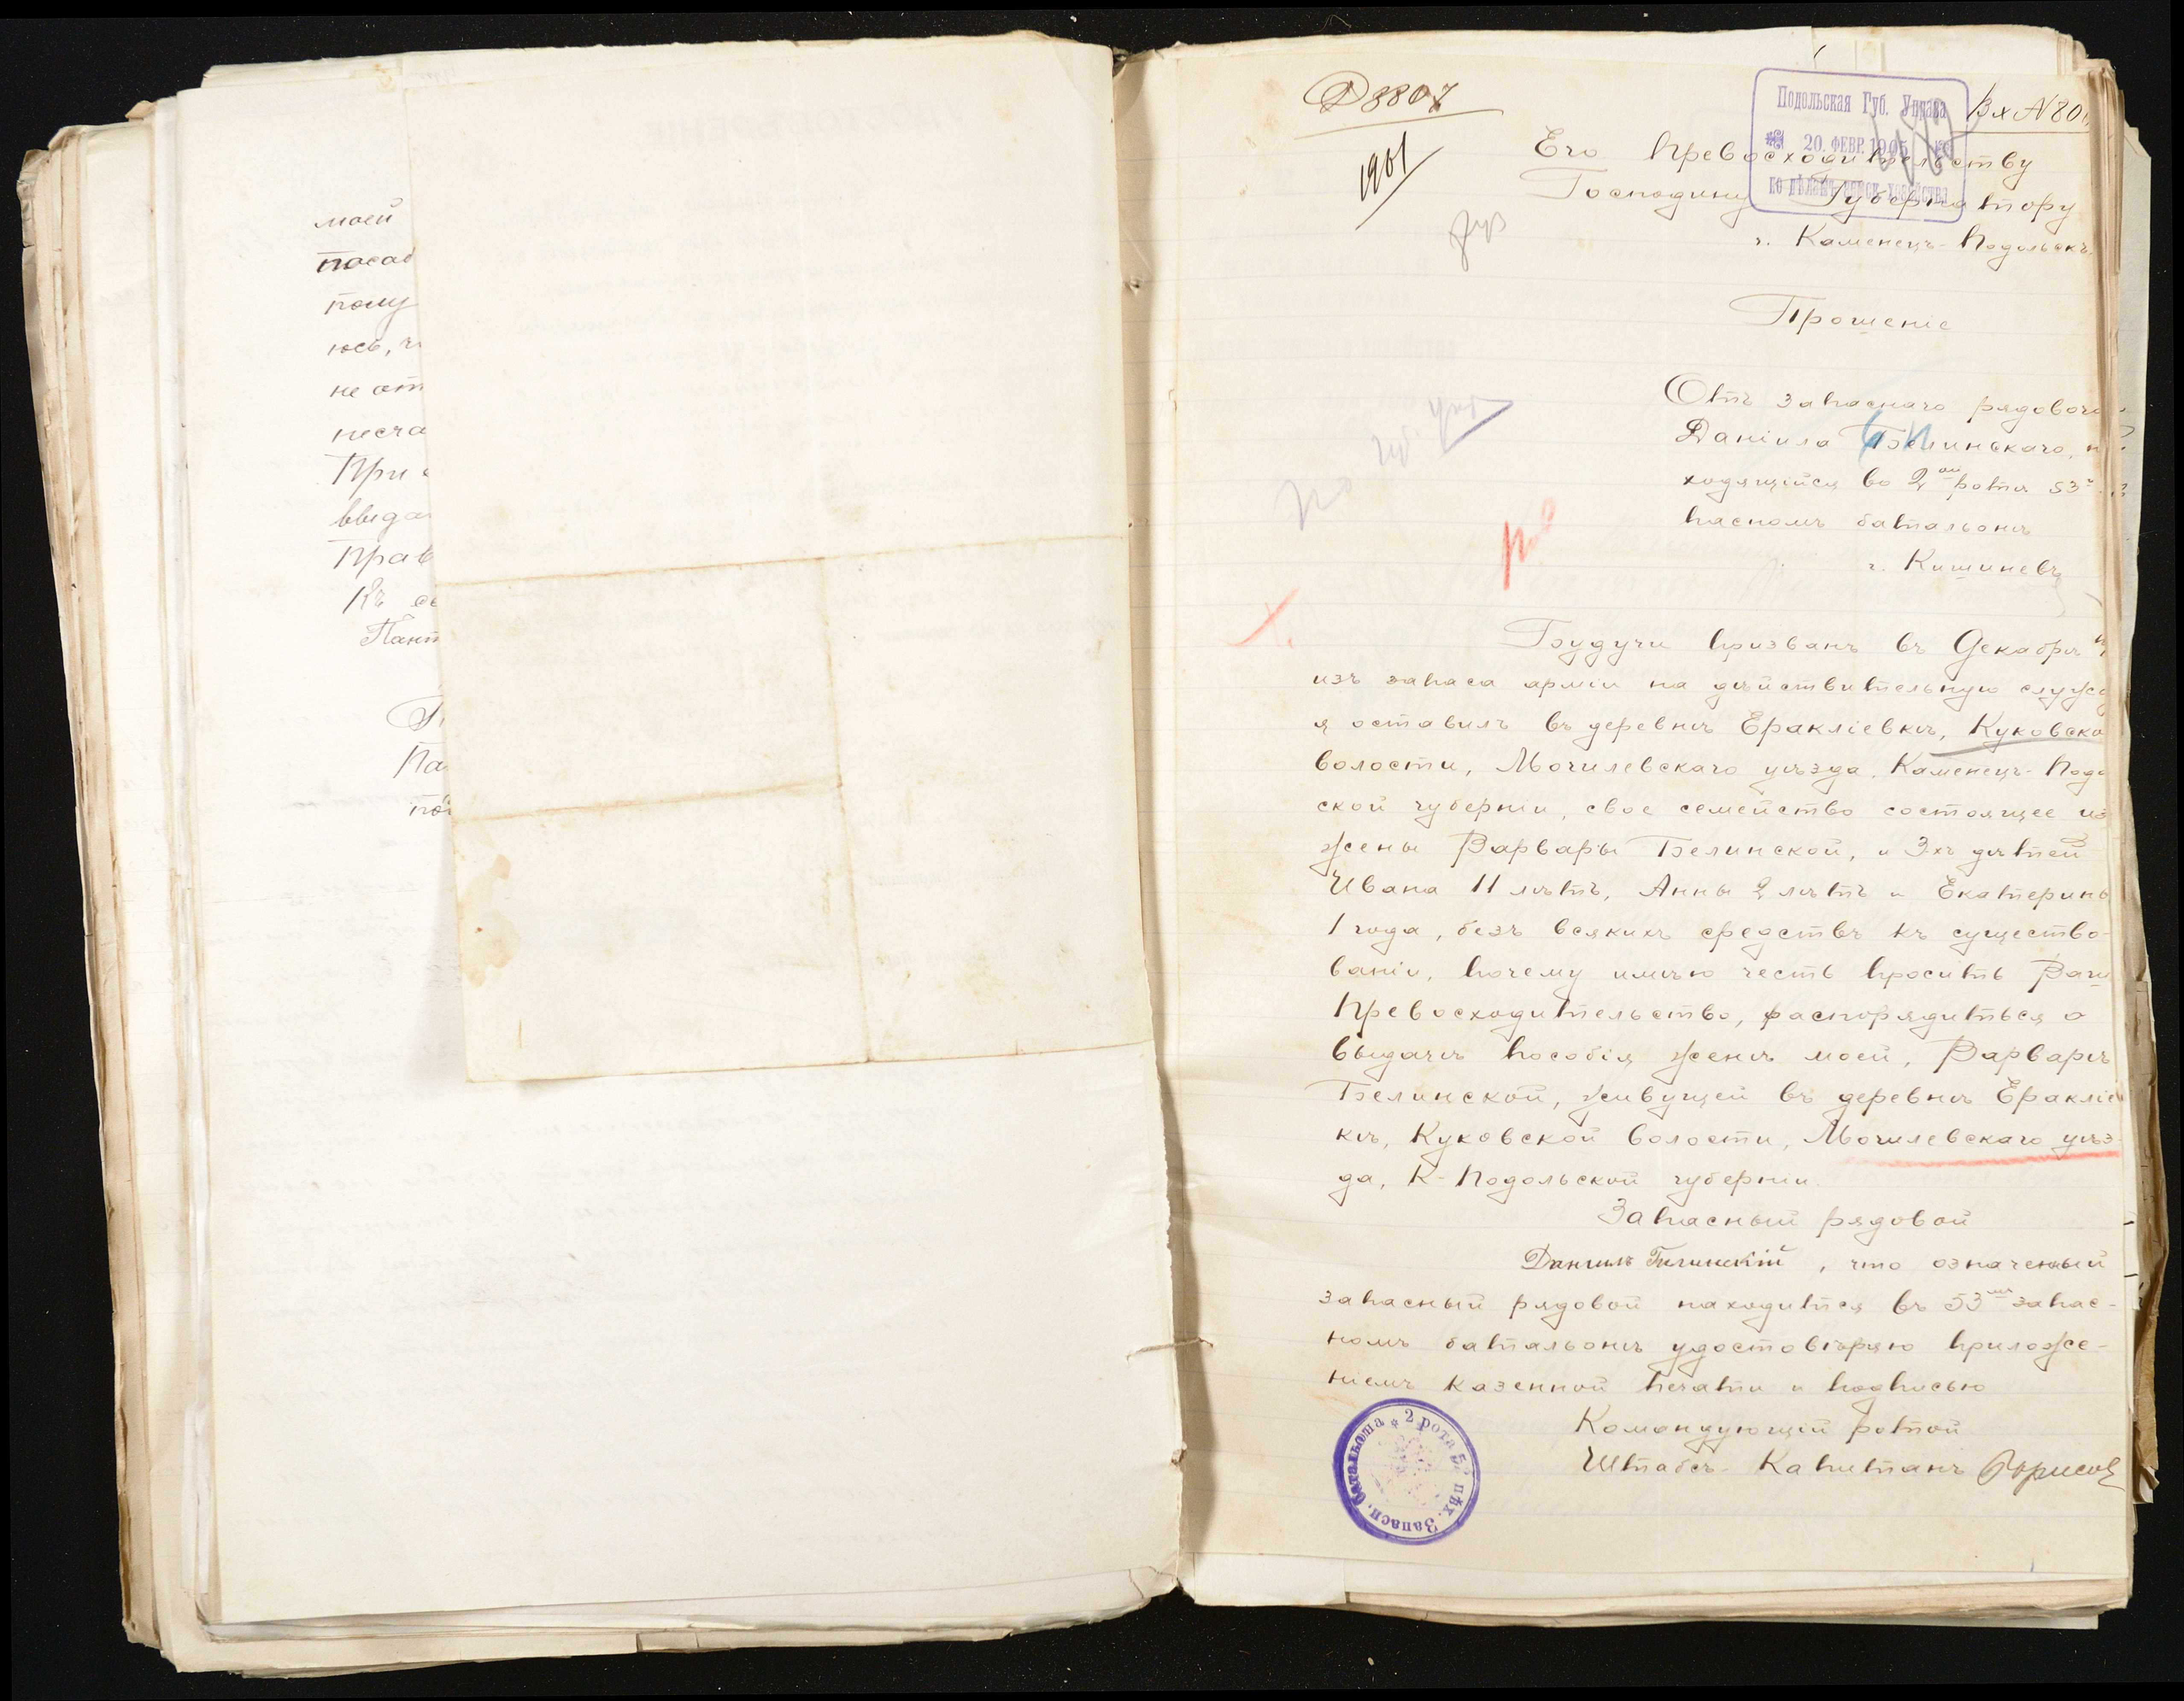 моей
посад
полу
юсь, ч
не от
несча
При
выда
Прав
Къ
Пант
Па
Д 8807
1901
Подольская Губ. Управа
20. ФЕВР. 1905
по дѣламъ земск. хозяйства
Вх N 80
Его Превосходительству
Господину Губернатору
г. Каменецъ-Подольскъ
Прошеніе
Отъ запаснаго рядового
Даніила Белинскаго, н
ходящійся во 2ой ротѣ 53
пасномъ баталіонѣ
г. Кишиневъ
Будучи призванъ въ Декабрѣ
изъ запаса арміи на дѣйствительную служб
я оставилъ въ деревнѣ Еракліевкѣ, Куковско
волости, Могилевскаго уѣзда, Каменецъ-Подо
ской губерніи, свое семейство состоящее из
жены Варвары Белинской, и 3хъ дѣтей
Ивана 11 лѣтъ, Анны 2 лѣтъ и Екатерины
1 года, безъ всякихъ средствъ къ существо-
ваніи, почему имѣю честь просить Ваш
Превосходительство, распорядиться о
выдачѣ пособія женѣ моей, Варварѣ
Белинской, живущей въ деревнѣ Ераклiев
кѣ, Куковской волости, Могилевскаго уѣз-
да, К-Подольской губерніи.
Запасный рядовой
Данилъ Билинскій, что означенный
запасный рядовой находится въ 53мъ запас-
номъ баталіонѣ удостовѣряю приложе-
ніемъ казенной печати и подписью
Командующій ротой
Штабсъ-Капитанъ Борисов
2 рота 53 пѣх. Запасн. баталіона